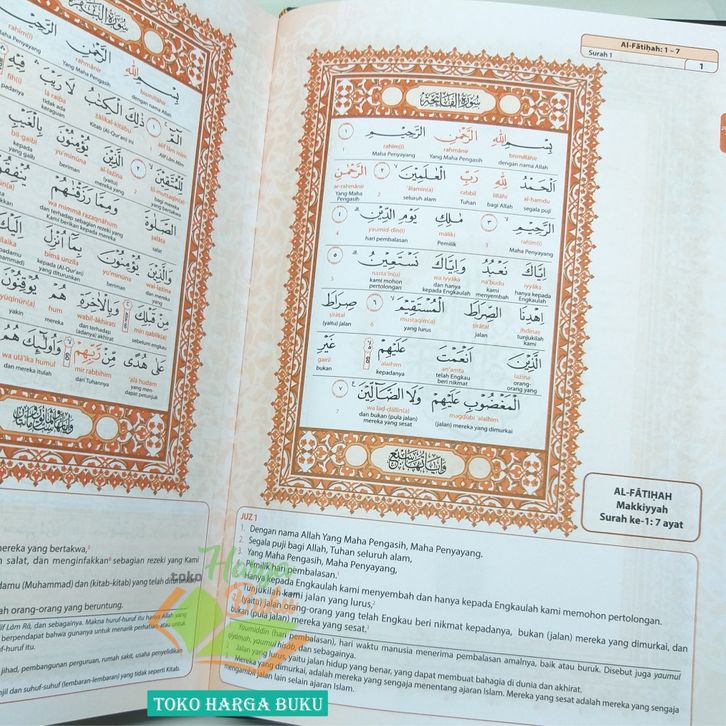 سورة البقرة
بِسْمِ اللّٰهِ الرَّحْمٰنِ الرَّحِيْمِ
bismillāhir rahmānir rahīm(i)
dengan nama Allah Yang Maha Pengasih Maha Penyayang
الۤمّۤ ۚ ١ ذٰلِكَ الْكِتٰبُ لَا رَيْبَ ۛ فِيْهِ
alif lām mīm żālikal-kitābu lā raiba fīh(i)
Alif Lām Mīm Kitab (Al-Qur'an) ini tidak ada keraguan padanya
لِّلْمُتَّقِيْنَ ٢ الَّذِيْنَ يُؤْمِنُوْنَ بِالْغَيْبِ
lil-muttaqīn(a) al-lażīna yu'minūna bil-gaibi
bagi mereka yang bertakwa (yaitu) mereka yang beriman kepada yang gaib
الصَّلٰوةَ وَمِمَّا رَزَقْنٰهُمْ يُنْفِقُوْنَ
ṣalāta wa mimmā razaqnāhum
salat dan terhadap sebagian rezeki yang Kami berikan kepada mereka
وَالَّذِيْنَ يُؤْمِنُوْنَ بِمَآ اُنْزِلَ اِلَيْكَ
wal-lażīna yu'minūna bimā unzila
dan mereka yang beriman kepada (Al-Qur'an) yang diturunkan
مِنْ قَبْلِكَ وَبِالْاٰخِرَةِ هُمْ يُوْقِنُوْنَ
min qablik(a) wabil-ākhirati hum yūqinūn(a)
sebelum engkau dan terhadap (adanya) akhirat mereka yakin
عَلٰى هُدًى مِّنْ رَّبِّهِمْ وَاُولٰۤىِٕكَ هُمُ
'alā hudam mir rabbihim wa ulā'ika humul
yang mendapat petunjuk dari Tuhannya dan mereka itulah
Al-Fātiḥah: 1 – 7
Surah 1
1
سورة الفاتحة
بِسْمِ اللّٰهِ الرَّحْمٰنِ الرَّحِيْمِ ١
bismillāhir rahmānir rahīm(i) 1
dengan nama Allah Yang Maha Pengasih Maha Penyayang
اَلْحَمْدُ لِلّٰهِ رَبِّ الْعٰلَمِيْنَ ٢ الرَّحْمٰنِ
al-ḥamdu lillāhi rabbil 'ālamīn(a) 2 ar-rahmānir
segala puji bagi Allah Tuhan seluruh alam, Yang Maha Pengasih
الرَّحِيْمِ ٣ مٰلِكِ يَوْمِ الدِّيْنِ ٤
rahīm(i) 3 māliki yaumid-dīn(i) 4
Maha Penyayang Pemilik hari pembalasan
اِيَّاكَ نَعْبُدُ وَاِيَّاكَ نَسْتَعِيْنُ ٥
iyyāka na'budu wa iyyāka nasta'īn(u) 5
hanya kepada Engkaulah kami menyembah dan hanya kepada Engkaulah kami mohon pertolongan
اِهْدِنَا الصِّرَاطَ الْمُسْتَقِيْمَ ٦ صِرَاطَ
ihdinaṣ ṣirāṭal mustaqīm(a) 6 ṣirāṭal
tunjukilah kami jalan yang lurus, (yaitu) jalan
الَّذِيْنَ اَنْعَمْتَ عَلَيْهِمْ غَيْرِ
lażīna an'amta 'alaihim gairil
orang-orang yang telah Engkau beri nikmat kepadanya bukan
الْمَغْضُوْبِ عَلَيْهِمْ وَلَا الضَّاۤلِّيْنَ ٧
magḍūbi 'alaihim wa laḍ-ḍāllīn(a) 7
(jalan) mereka yang dimurkai dan bukan (pula jalan) mereka yang sesat
AL-FĀTIḤAH
Makkiyyah
Surah ke-1: 7 ayat
JUZ 1
1. Dengan nama Allah Yang Maha Pengasih, Maha Penyayang.
2. Segala puji bagi Allah, Tuhan seluruh alam,
3. Yang Maha Pengasih, Maha Penyayang,
4. Pemilik hari pembalasan.¹
Hanya kepada Engkaulah kami menyembah dan hanya kepada Engkaulah kami memohon pertolongan.
Tunjukilah kami jalan yang lurus,²
(yaitu) jalan orang-orang yang telah Engkau beri nikmat kepadanya, bukan (jalan) mereka yang dimurkai, dan
bukan (pula jalan) mereka yang sesat.³
Yaumiddīn (hari pembalasan), hari waktu manusia menerima pembalasan amalnya, baik atau buruk. Disebut juga yaumul
qiyāmah, yaumul ḥisāb, dan sebagainya.
Jalan yang lurus, yaitu jalan hidup yang benar, yang dapat membuat bahagia di dunia dan akhirat.
Mereka yang dimurkai, adalah mereka yang sengaja menentang ajaran Islam. Mereka yang sesat adalah mereka yang sengaja
mengambil jalan lain selain ajaran Islam.
mereka yang bertakwa,
salat, dan menginfakkan sebagian rezeki yang Kami
(Muhammad) dan (kitab-kitab) yang telah diturunkan
orang-orang yang beruntung.
Alif Lām Rā, dan sebagainya. Makna huruf-huruf itu hanya Allah yang
berpendapat bahwa gunanya untuk menarik perhatian atau untuk
huruf itu.
jihad, pembangunan perguruan, rumah sakit, usaha penyelidikan
Injil dan suhuf-suhuf (lembaran-lembaran) yang tidak seperti Kitab.
toko Harga Buku
TOKO HARGA BUKU